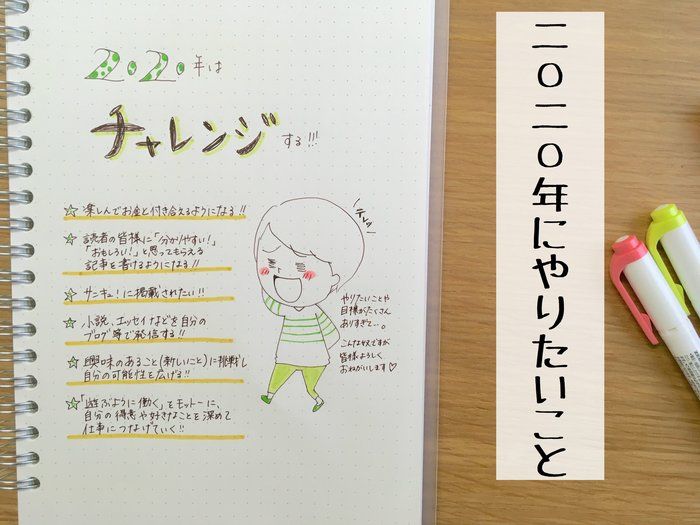 2020年は
チャレンジする!!!
☆楽しんでお金と付き合えるようになる!!
☆読者の皆様に「分かりやすい!」
「おもしろい!」と思ってもらえる
記事を書けるようになる!!
☆サンキュ!に掲載されたい!!
☆小説、エッセイなどを自分の
ブログ等で発信する!!
☆興味のあること(新しいこと)に挑戦し
自分の可能性を広げる!!
☆「遊ぶように働く」をモットーに、
自分の得意や好きなことを深めて
仕事につなげていく!!
テレッ
やりたいことや
目標がたくさん
ありすぎて…。
こんなやつですが
皆様よろしく
おねがいします♡
二〇二〇年にやりたいこと